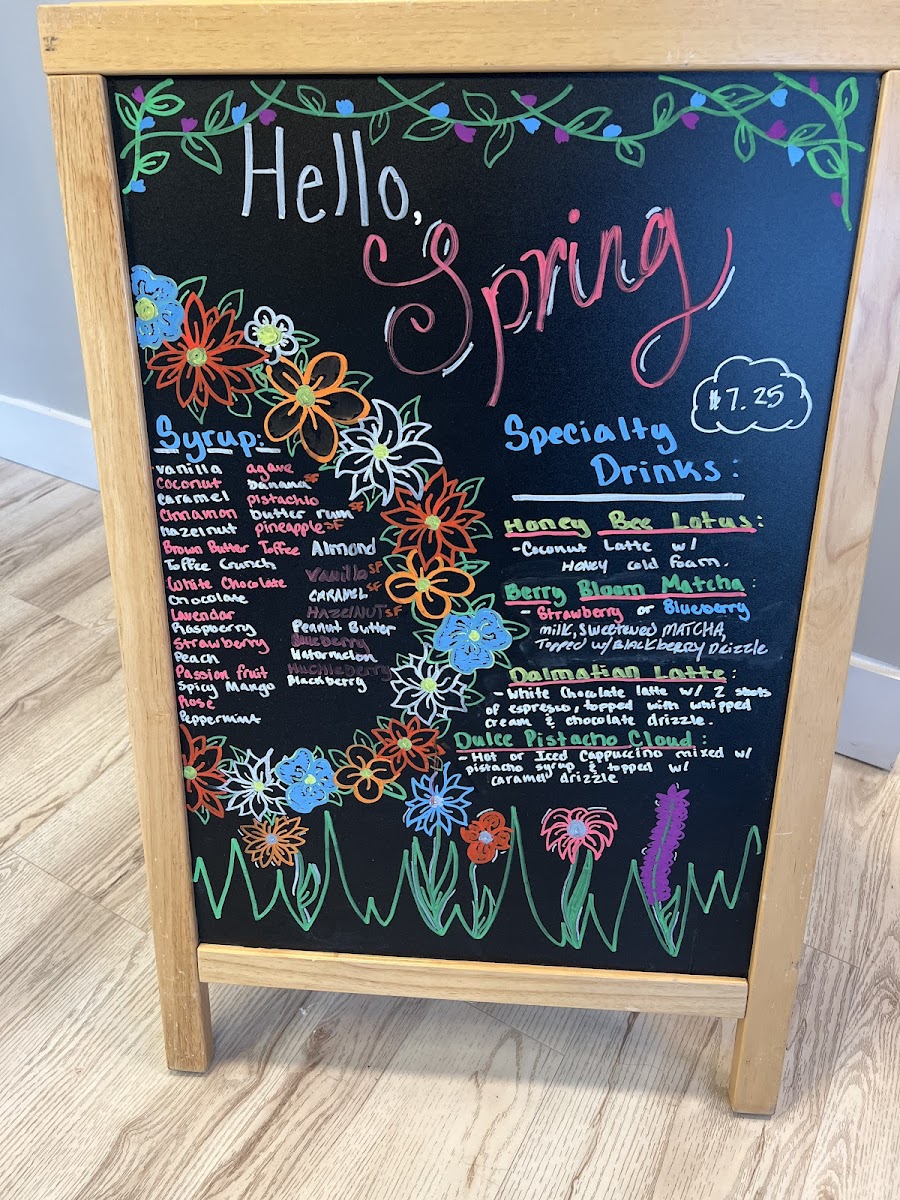 Hello,
Spring
$7.25
Syrup:
vanilla
Coconut
caramel
Cinnamon
hazelnut
Brown Butter Toffee
Toffee Crunch
White Chocolate
Chocolate
Lavendar
Raspberry
Strawberry
Peach
Passion fruit
Spicy Mango
Rose
Peppermint
agave
banana SF
pistachio
butter rum SF
pineapple SF
Almond
Vanilla SF
CARAMEL SF
HAZELNUT SF
Peanut Butter
Blueberry
Watermelon
Huckleberry
Blackberry
Specialty
Drinks:
Honey Bee Lotus:
-Coconut Latte w/
HONEY cold foam.
Berry Bloom Matcha:
- Strawberry or Blueberry
milk, sweetened MATCHA,
TOPPED W/ BLACKBERRY Drizzle
Dalmatian Latte:
- White Chocolate latte w/ 2 shots
of espresso, topped with whipped
cream & chocolate drizzle.
Dulce Pistacho Cloud:
- Hot or Iced Cappuccino mixed w/
pistacho syrup & topped w/
caramel drizzle